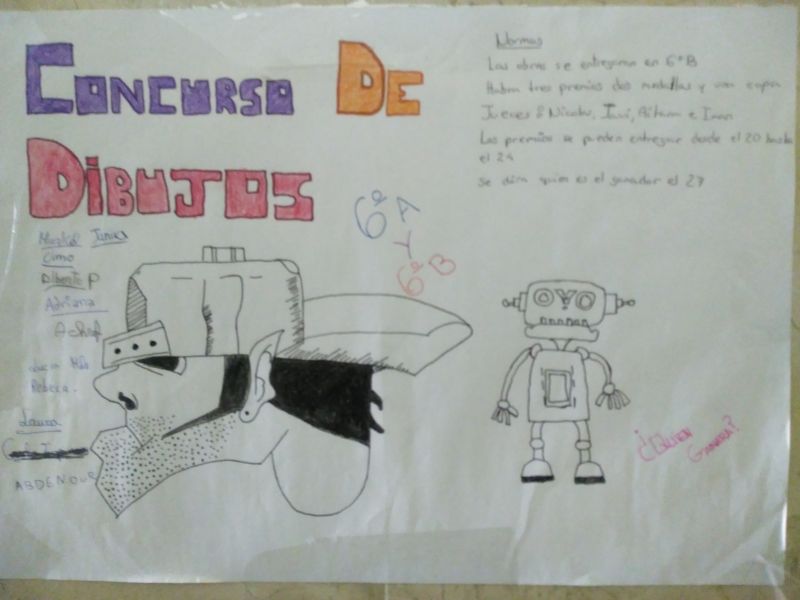 CONCURSO DE
DIBUJOS
Normas
Las obras se entregaran en 6ºB
Habra tres premios dos medallas y una copa
Jueves 8 Nicolas, Javi, Aitana e Ivan
Los premios se pueden entregar desde el 20 hasta
el 24
se dira quien es el ganador el 27
6º A
Y
6º B
Olmo
Alberto P
Adriana
Achraf
Rebeca.
Laura
ABDENOUR
¿QUIEN
GANARA?